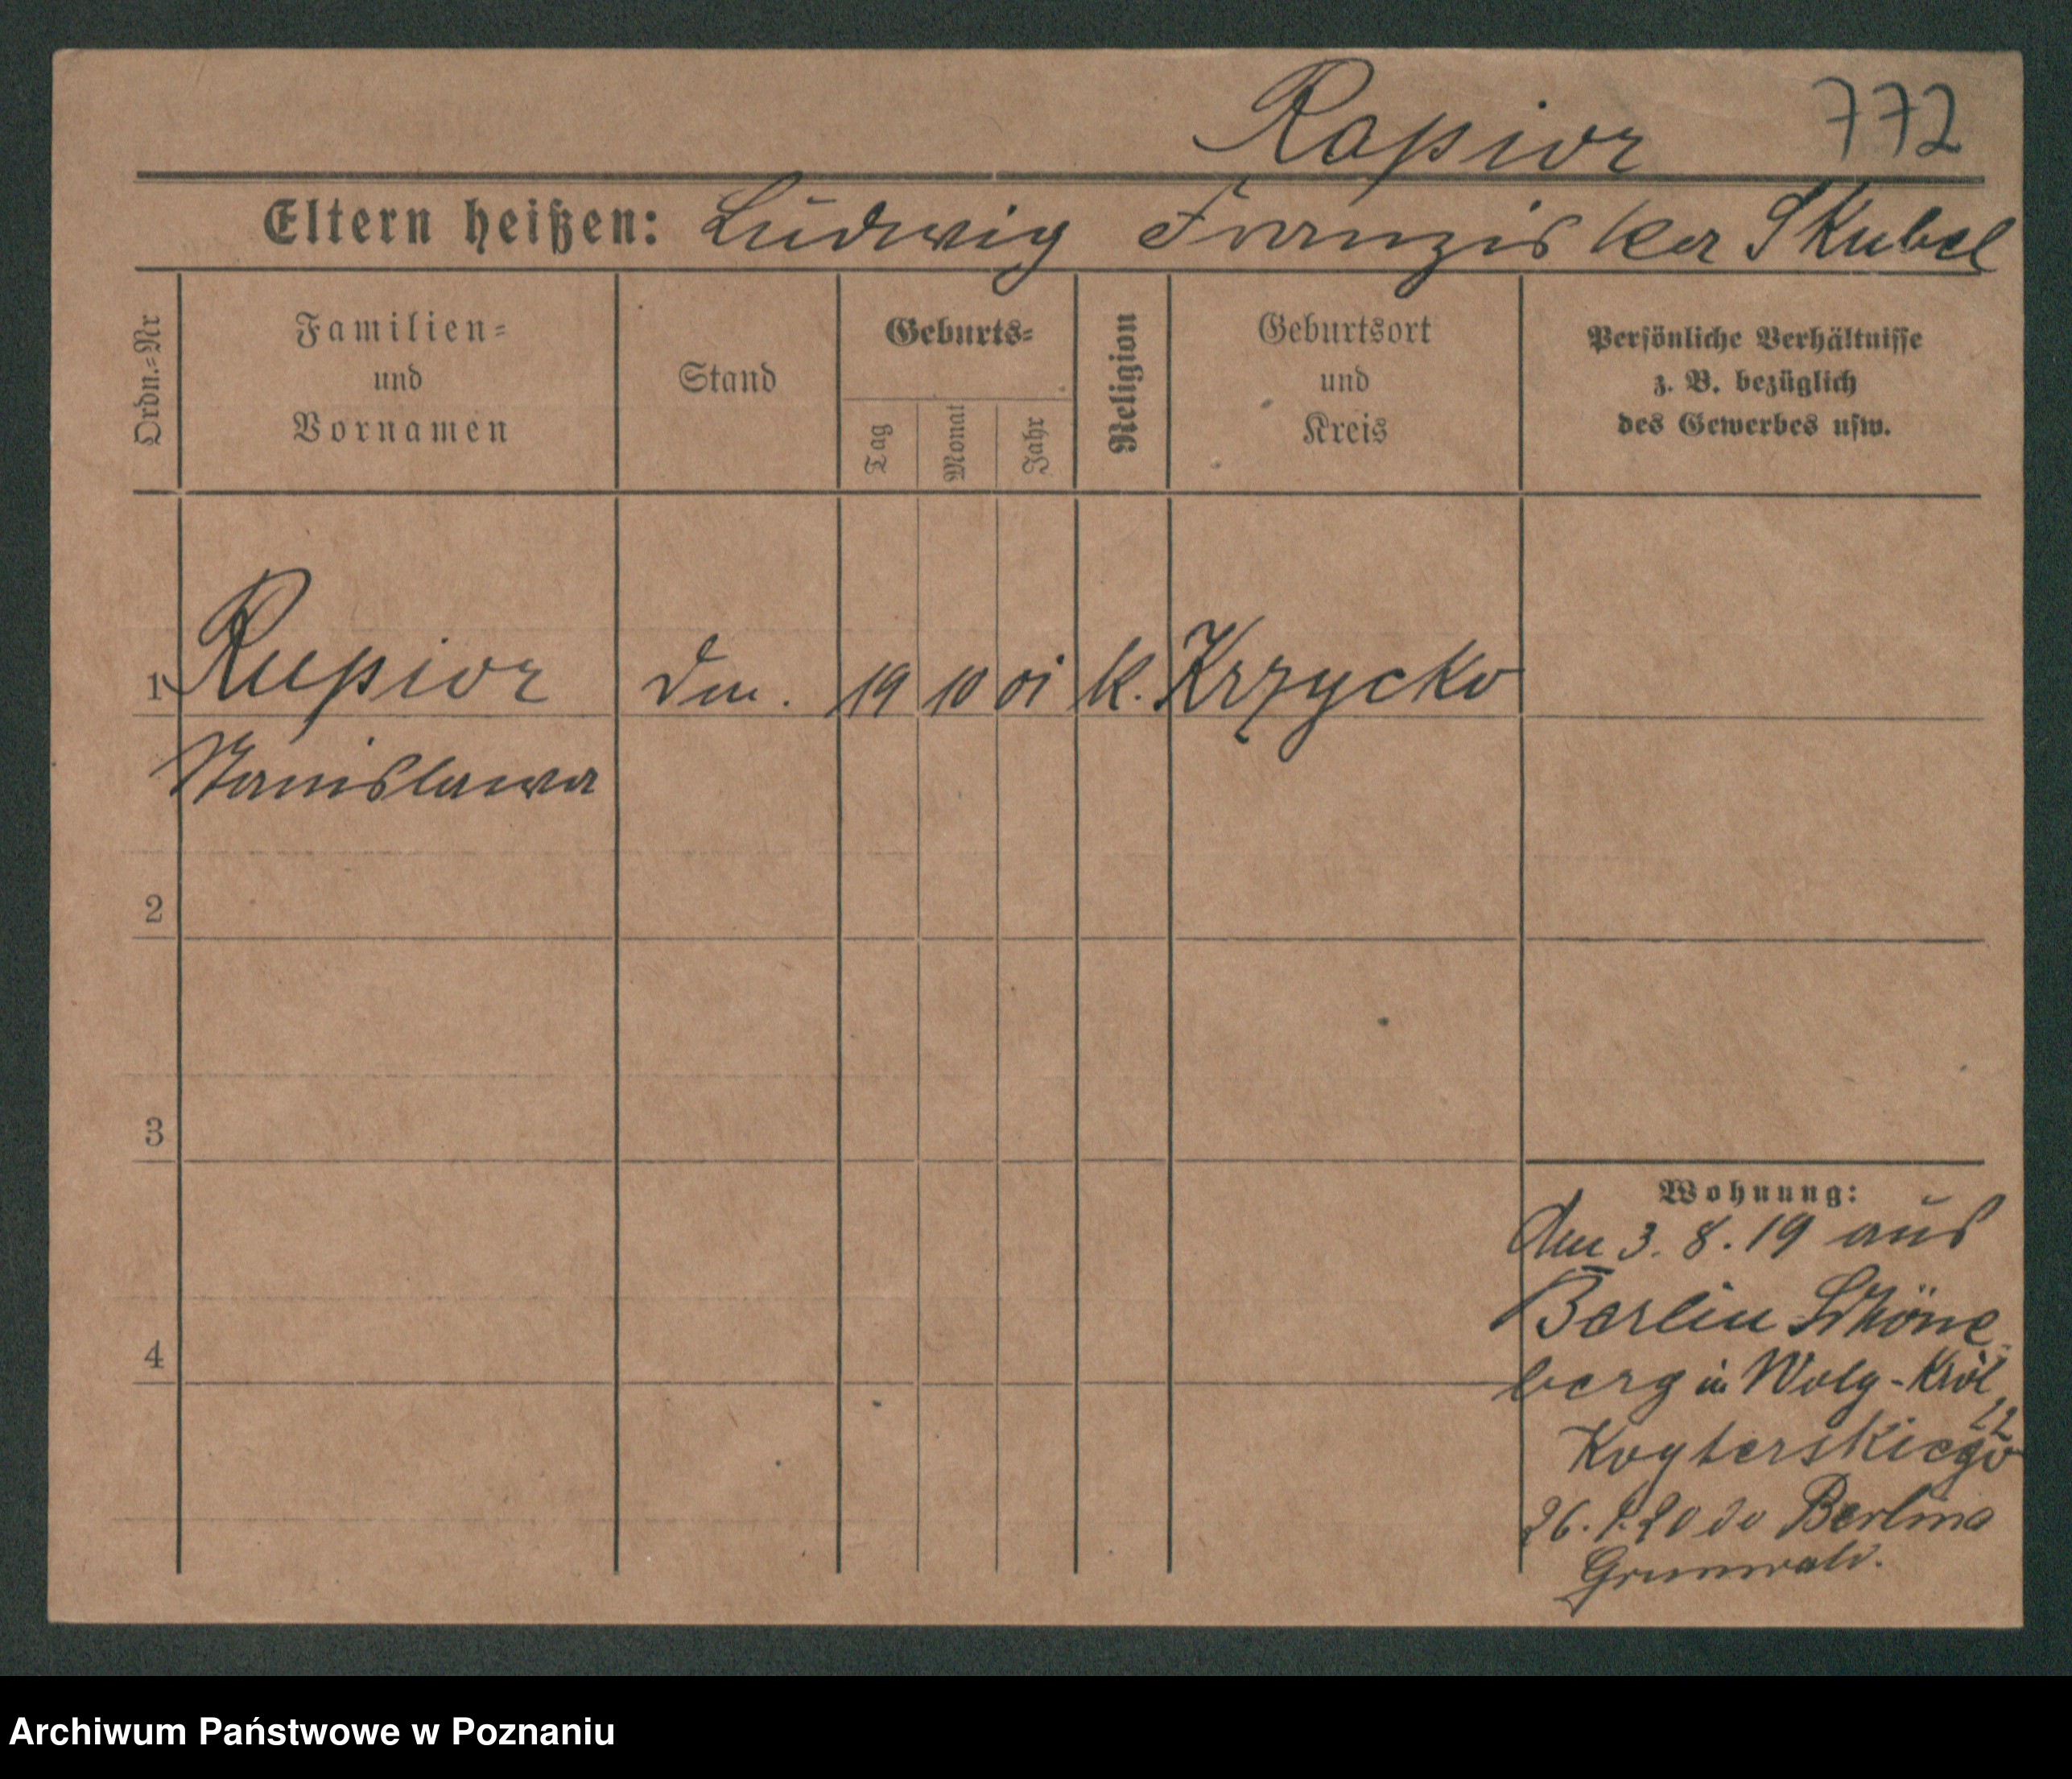 Rapior 772
Eltern heißen: Ludwig Franziska Skubel
Ordn.=Nr
Familien=
und
Vornamen
Stand
Geburts=
Tag
Monat
Jahr
Religion
Geburtsort
und
Kreis
Persönliche Verhältnisse
z. B. bezüglich
des Gewerbes usw.
1 Rapior 19 10 01 k. Krzycko
Stanislawa
2
3
4
Wohnung:
Am 3. 8. 19 aus
Berlin Schöne-
berg in
26. 20 do Berlina
Grunwald.
Archiwum Państwowe w Poznaniu